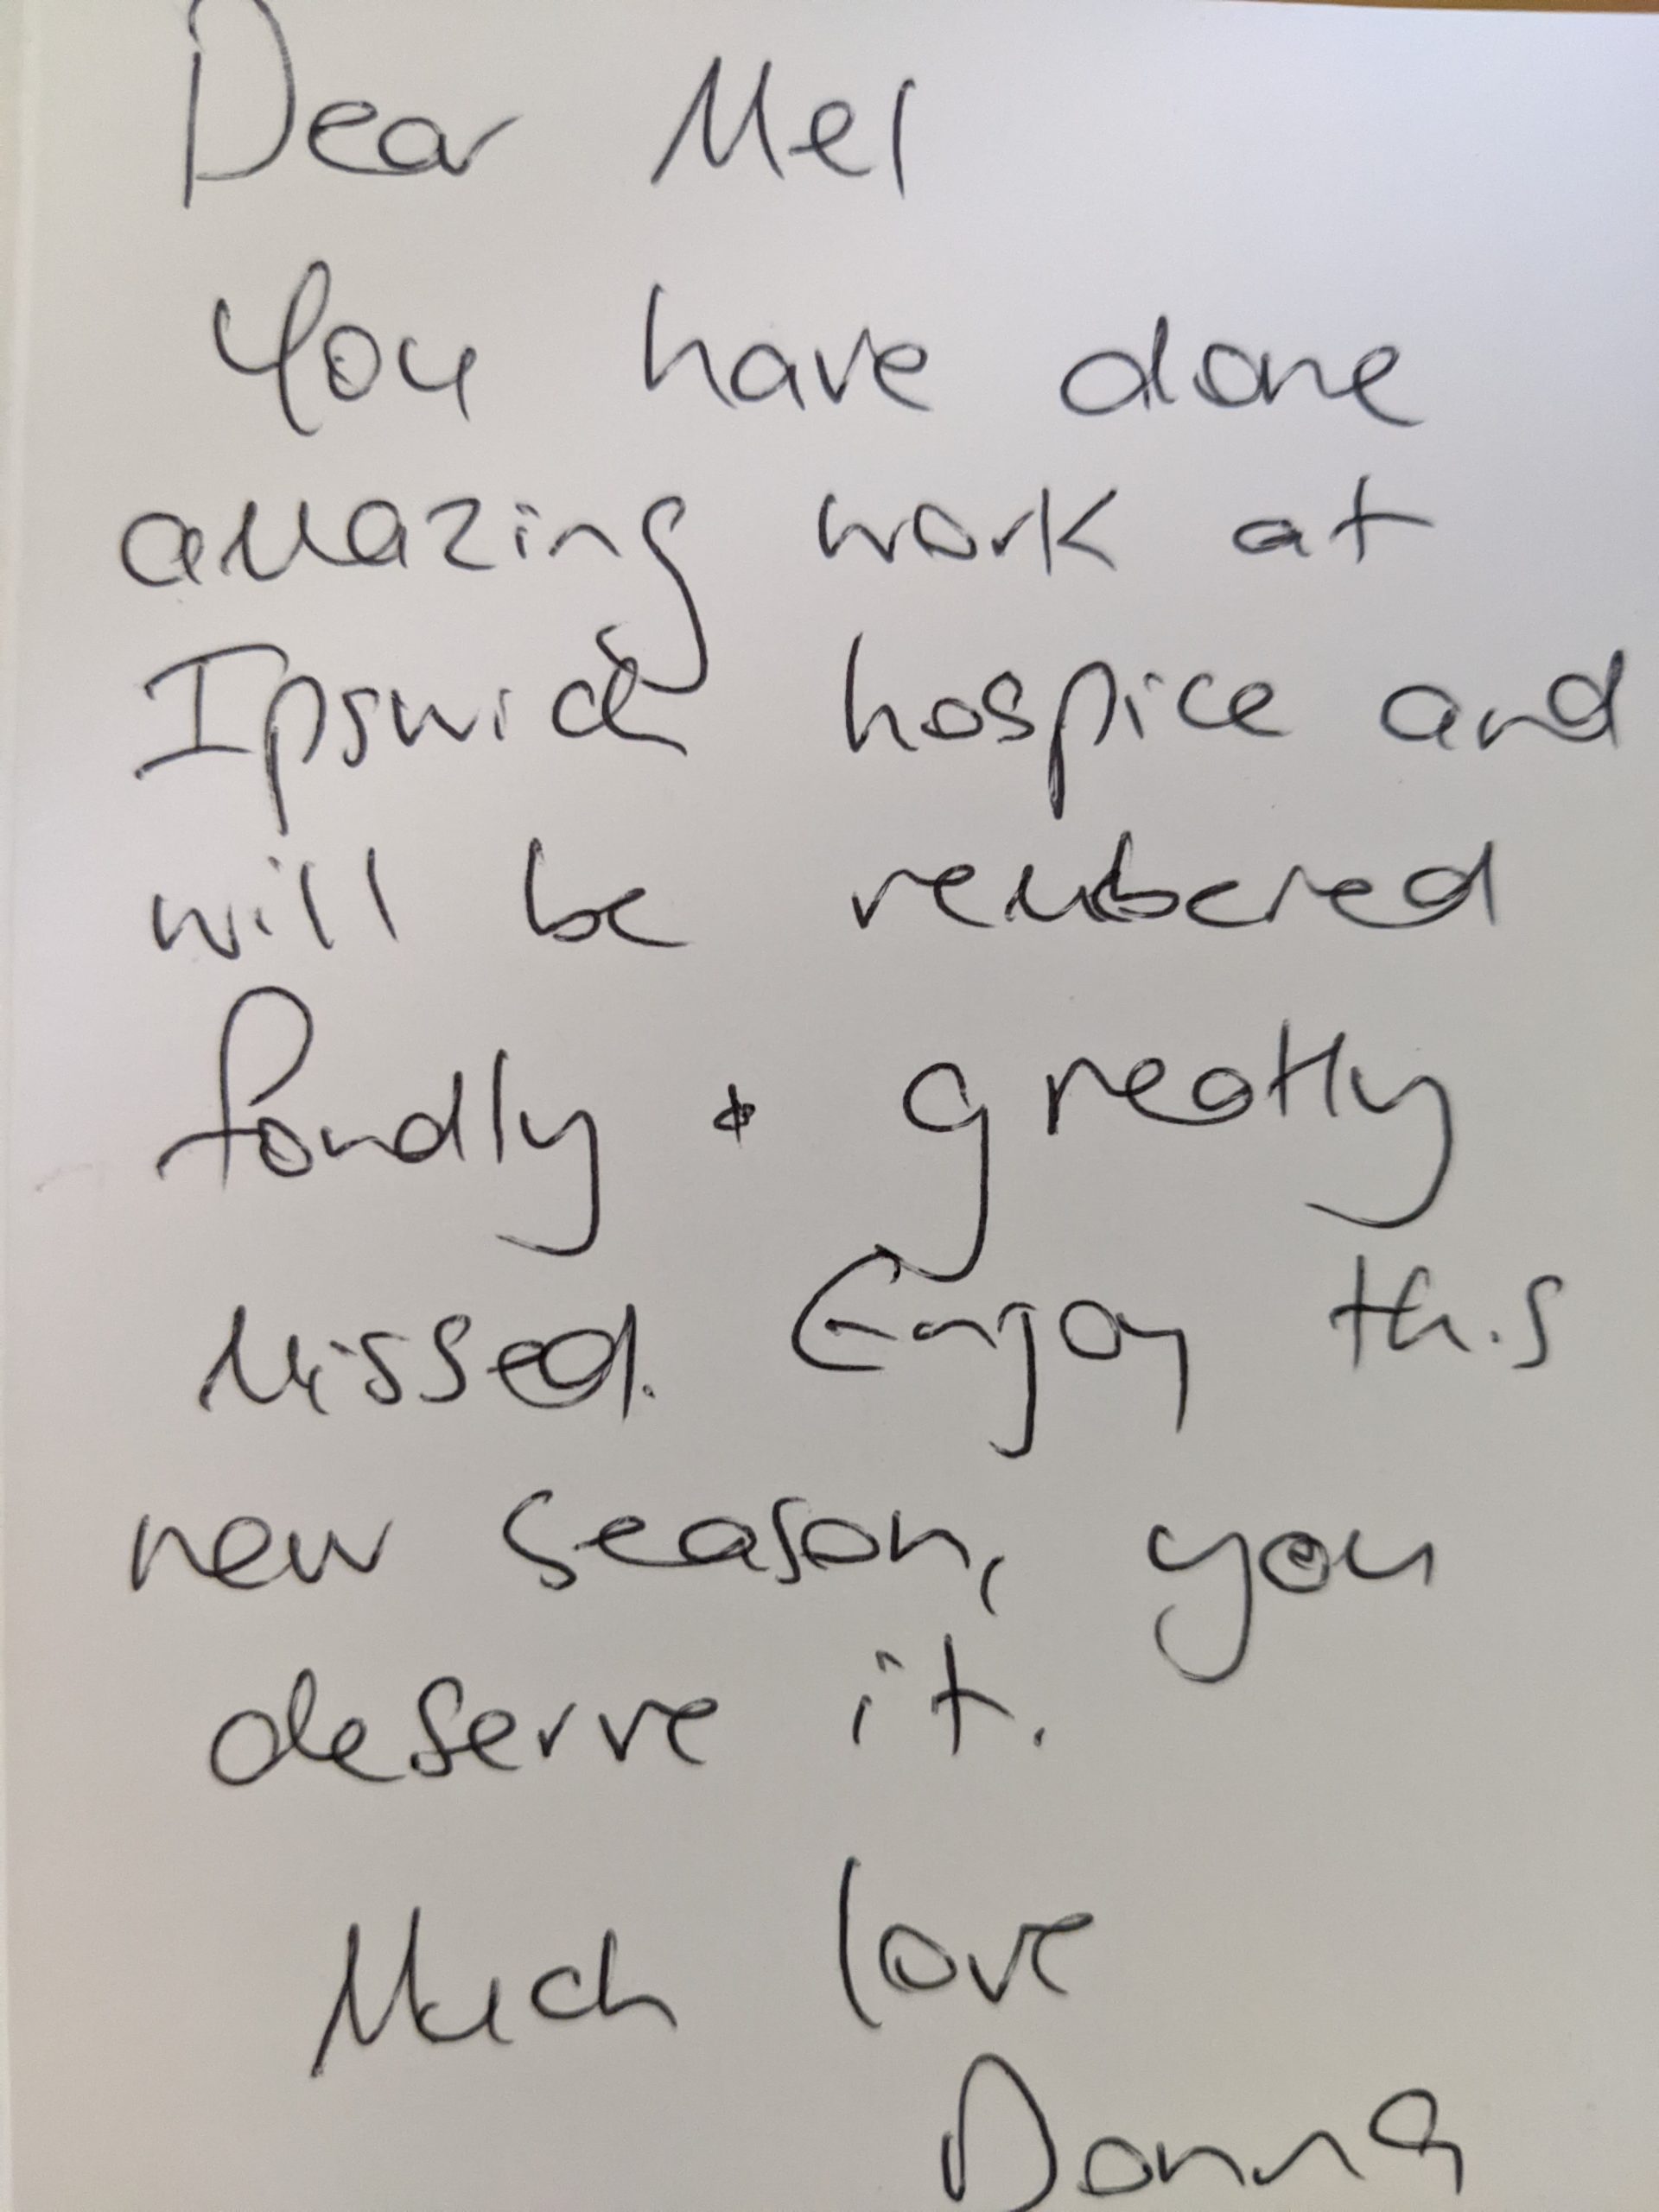 Dear Mel
You have done
amazing work at
Ipswich hospice and
will be rembered
fondly + greatly
missed. Enjoy this
new season, you
deserve it.
Much love
Donna